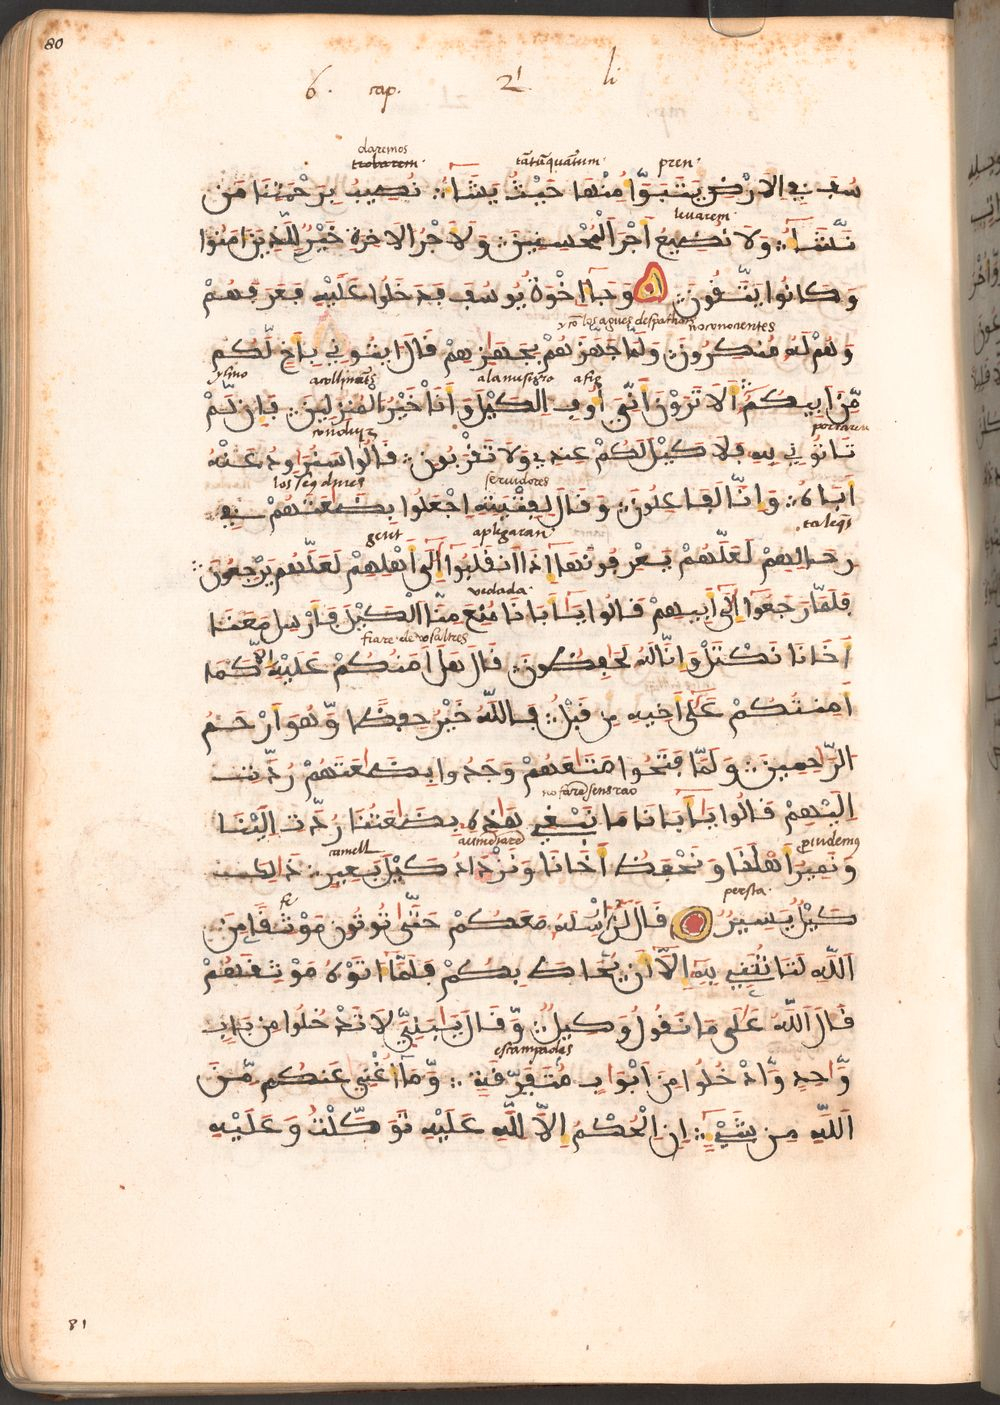 80
6. cap. 2¹ li
daremos
trobarem tātūquātum pren
سُفَ فِي الَارْضِ يَتَبَوَّأُ مِنْهَا حَيْثُ يَشَآءُ نُصِيبُ بِرَحْمَتِنَا مَن
leuarem
نَّشَآءُ وَلَا نُضِيعُ أَجْرَ الْمُحْسِنِينَ وَلَأَجْرُ الَاخِرَةِ خَيْرٌ لِّلَّذِينَ ءَامَنُوا
وَكَانُوا يَتَّقُونَ وَجَآءَ اخْوَةُ يُوسُفَ فَدَخَلُوا عَلَيْهِ فَعَرَفَهُمْ
y cō los agues despachat no conocientes
وَهُمْ لَهُ مُنكِرُونَ وَلَمَّا جَهَّزَهُمْ بِجَهَازِهِمْ قَالَ ايتُونِي بِأَخٍ لَّكُم
y sino acollints ala nusizro afig
مِّنَ ابِيكُمُ أَلَا تَرَوْنَ أَنِّي أُوفِ الْكَيْلَ وَأَنَا خَيْرُ الْمُنزِلِينَ فَإِن لَّمْ
conduyz portaren
تَاتُونِي بِهِ فَلَا كَيْلَ لَكُمْ عِندِي وَلَا تَقْرَبُونِ قَالُوا سَنُرَاوِدُ عَنْهُ
seruidores
أَبَاهُ وَإِنَّا لَفَاعِلُونَ وَقَالَ لِفِتْيَتِهِ اجْعَلُوا بِضَاعَتَهُمْ فِي
gent apligaran taleqs
رِحَالِهِمْ لَعَلَّهُمْ يَعْرِفُونَهَا إِذَا انقَلَبُوا إِلَى أَهْلِهِمْ لَعَلَّهُمْ يَرْجِعُونَ
vedada
فَلَمَّا رَجَعُوا إِلَى أَبِيهِمْ قَالُوا يَآأَبَانَا مُنِعَ مِنَّا الْكَيْلُ فَأَرْسِلْ مَعَنَا
fiare de vsaltres
أَخَانَا نَكْتَلْ وَإِنَّا لَهُ لَحَافِظُونَ قَالَ هَلَ امَنُكُمْ عَلَيْهِ إِلَّا كَمَا
أَمِنتُكُمْ عَلَى أَخِيهِ مِن قَبْلُ فَاللَّهُ خَيْرٌ حِفْظًا وَهُوَ أَرْحَمُ
الرَّاحِمِينَ وَلَمَّا فَتَحُوا مَتَاعَهُمْ وَجَدُوا بِضَاعَتَهُمْ رُدَّتِ
no fare sensrao
إِلَيْهِمْ قَالُوا يَآأَبَانَا مَا نَبْغِي هَذِهِ بِضَاعَتُنَا رُدَّتِ إِلَيْنَا
camell aumētare
وَنَمِيرُ أَهْلَنَا وَنَحْفَظُ أَخَانَا وَنَزْدَادُ كَيْلَ بَعِيرٍ ذَلِكَ
fe persta
كَيْلٌ يَسِيرٌ قَالَ لَنُ ارْسِلَهُ مَعَكُمْ حَتَّى تُوتُونِ مَوْثِقًا مِّنَ
اللَّهِ لَتَاتُنَّنِي بِهِ إِلَّا أَنْ يُحَاطَ بِكُمْ فَلَمَّا ءَاتَوْهُ مَوْثِقَهُمْ
قَالَ اللَّهُ عَلَى مَا نَقُولُ وَكِيلٌ وَقَالَ يَابَنِيَّ لَا تَدْخُلُوا مِن بَابٍ
escampades
وَّاحِدٍ وَّادْخُلُوا مِنَ ابْوَابٍ مُّتَفَرِّقَةٍ وَّمَآ أُغْنِي عَنكُم مِّنَ
اللَّهِ مِن شَيْءٍ إِنِ الْحُكْمُ إِلَّا لِلَّهِ عَلَيْهِ تَوَكَّلْتُ وَعَلَيْهِ
81